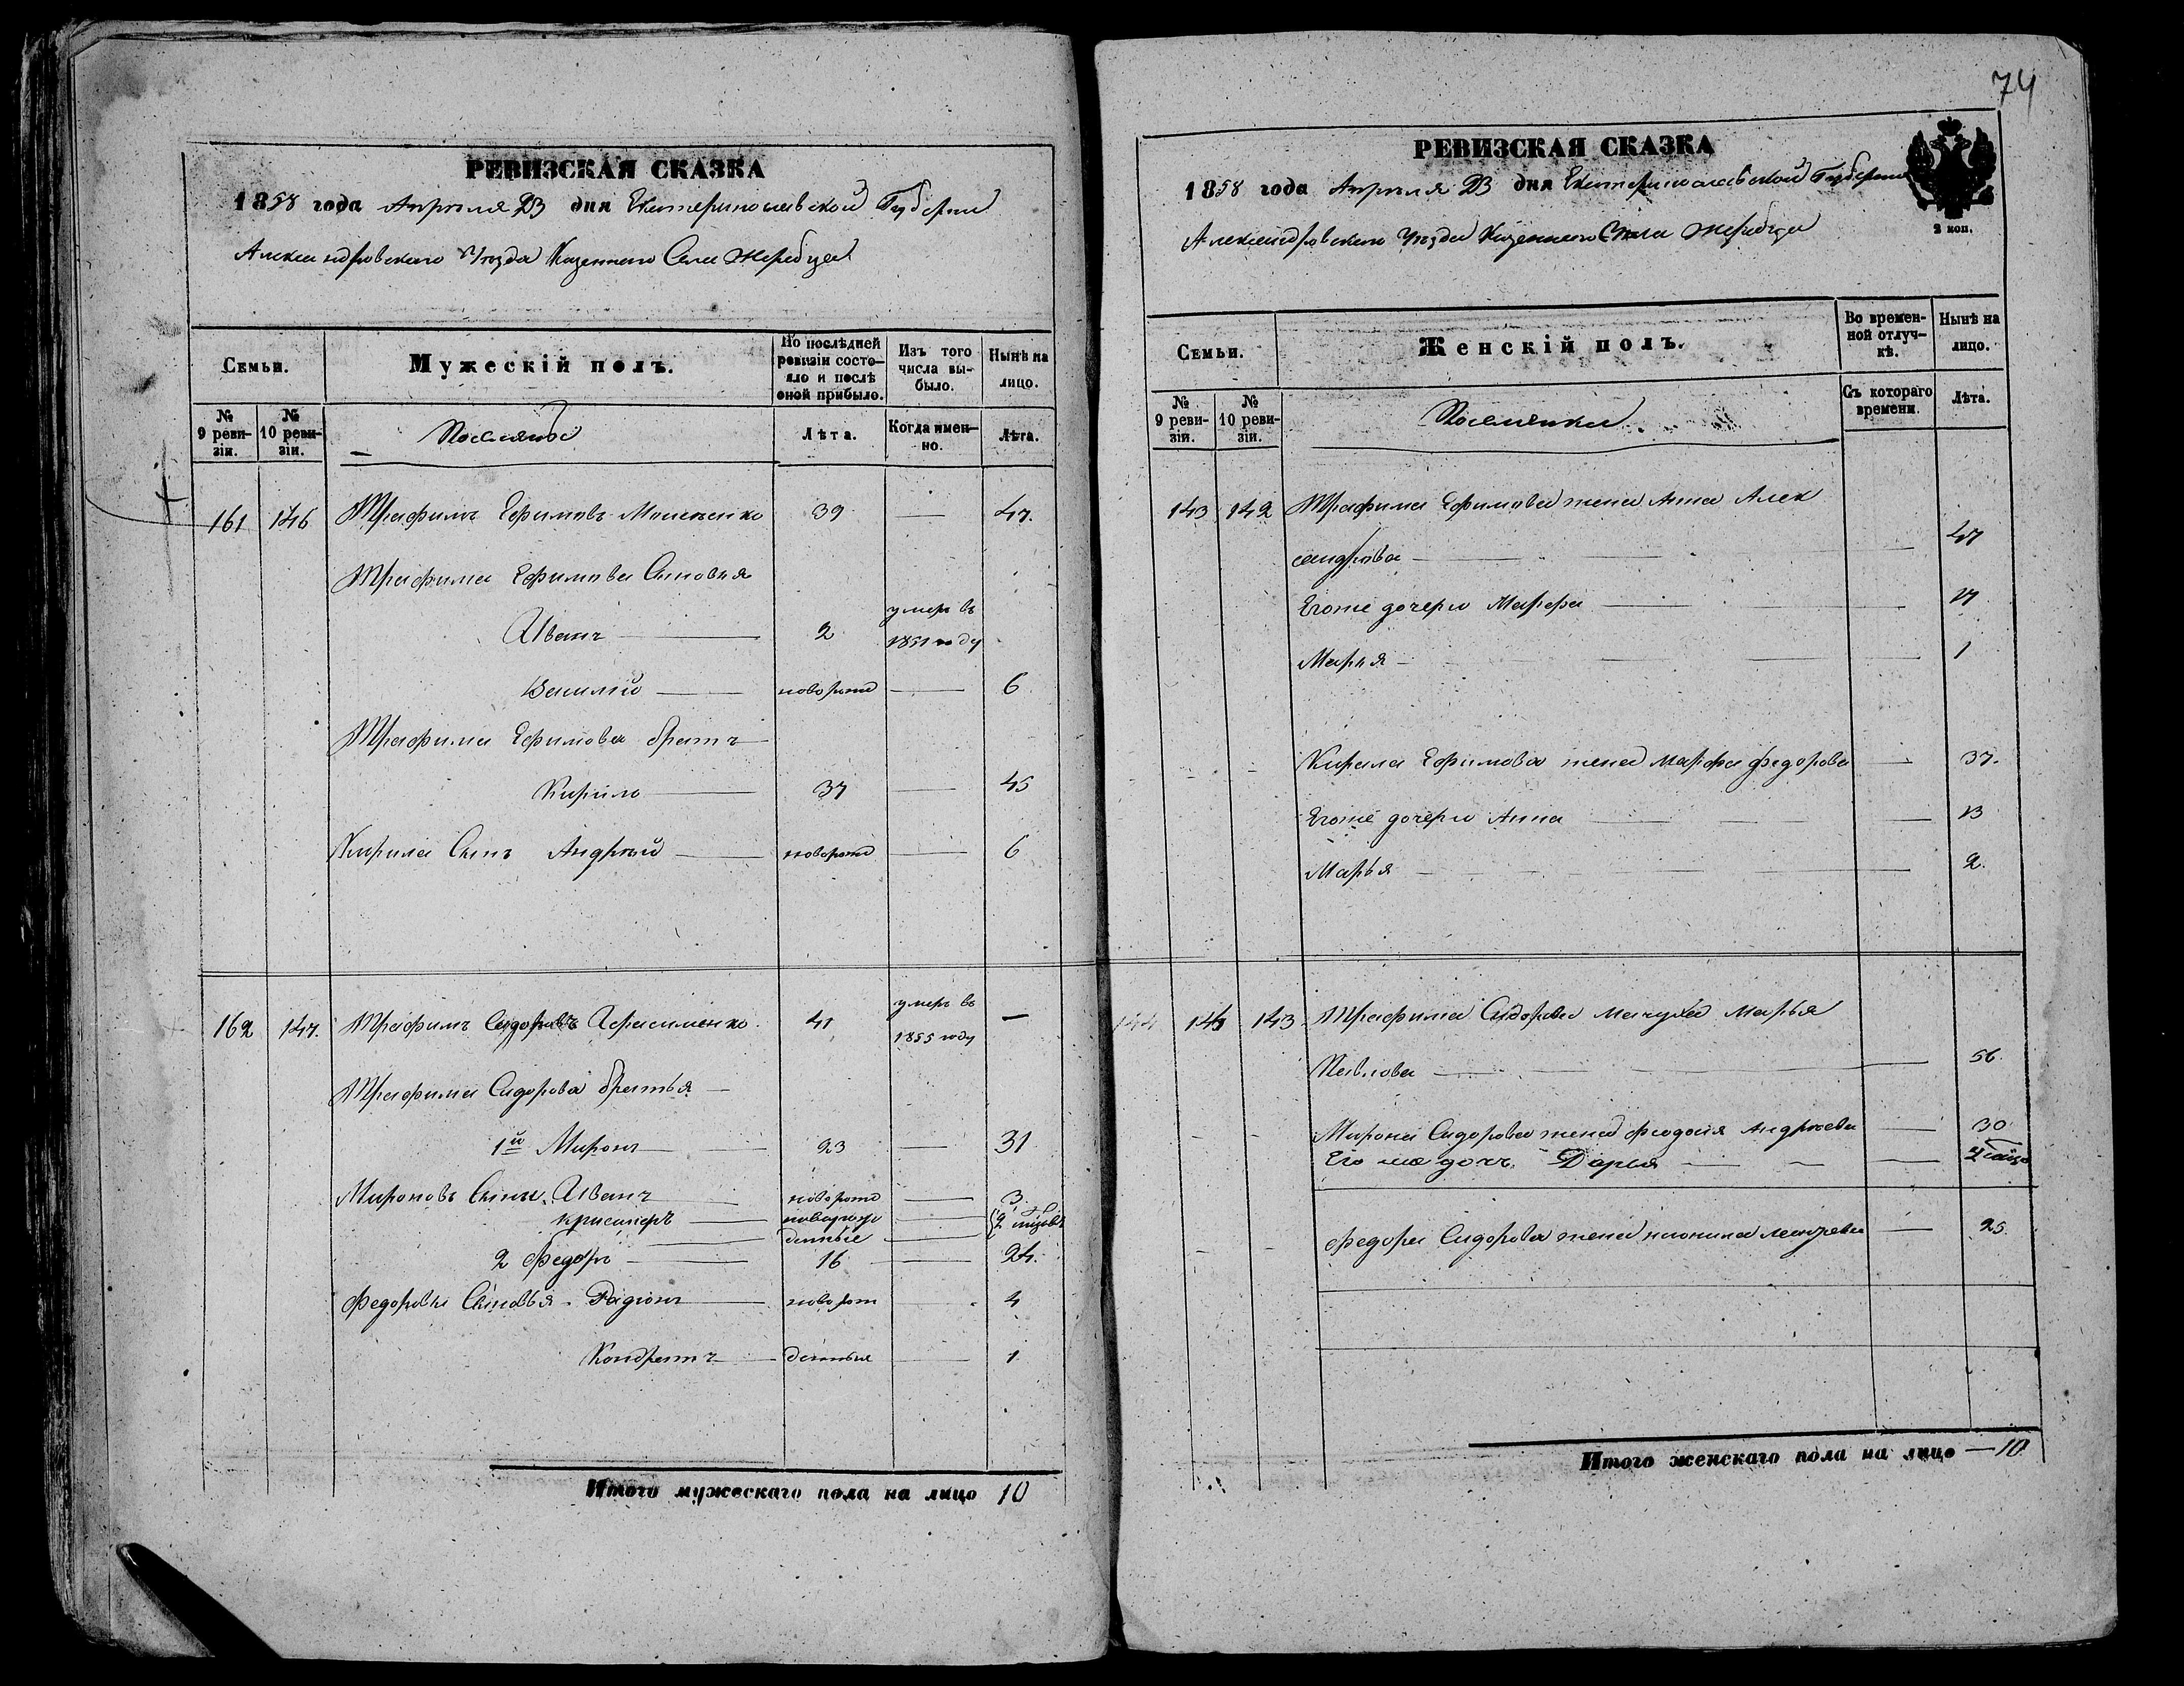 РЕВИЗСКАЯ СКАЗКА
1858 года Апрѣля 23 дня Екатеринославской Губерніи
Александровскаго Уѣзда Казеннаго Села Жеребца
Семьи.
Мужескій полъ.
По послѣдней ревизіи состояло и послѣ оной прибыло.
Изъ того числа выбыло.
Нынѣ на лицо.
№ 9 ревизіи.
№ 10 ревизіи.
Поселяне
Лѣта.
Когда именно.
Лѣта.
161 146 Трафимъ Ефимовъ 39 — 47.
Трафима Ефимова Сыновья
Иванъ — 2 умеръ въ 1851 году
Василій — новорож — 6
Трафима Ефимова братъ
Кирилъ — 37 — 45
Кирила Сынъ Андрей — новорож — 6
162 147. Трафимъ Сидоровъ Герасименко 41 умеръ въ 1855 году —
Трафима Сидорова братья
1й Миронъ — 23 — 31
Мироновъ Сынъ Иванъ новорож — 3
— новорож
денные —
2 Федоръ — 16 — 24.
Федоровы Сыновья Радіонъ новорож 4
Кондратъ — денныя — 1
Итого мужескаго пола на лицо 10
74
РЕВИЗСКАЯ СКАЗКА
1858 года Апрѣля 23 дня Екатеринославской Губерніи
Александровскаго Уѣзда Казеннаго Села Жеребца
2 коп.
Семьи.
Женскій полъ.
Во временной отлучкѣ.
Нынѣ на лицо.
№ 9 ревизіи.
№ 10 ревизіи.
Поселянки
Съ котораго времени.
Лѣта.
143 142 Трафима Ефимова жена Анна Алек
сандрова — 47
Егоже дочери Марфа — 17
Марья — 1
Кирила Ефимова жена Марфа Федорова — 37.
Егоже дочери Анна — 13
Марья — 2.
144 143 Трафима Сидорова мачуха Марья
Павлова — 56.
Мирона Сидорова жена Феодосія Андреева — 30
Его же дочь Дарья —
Федора Сидорова жена — 25
Итого женскаго пола на лицо — 10